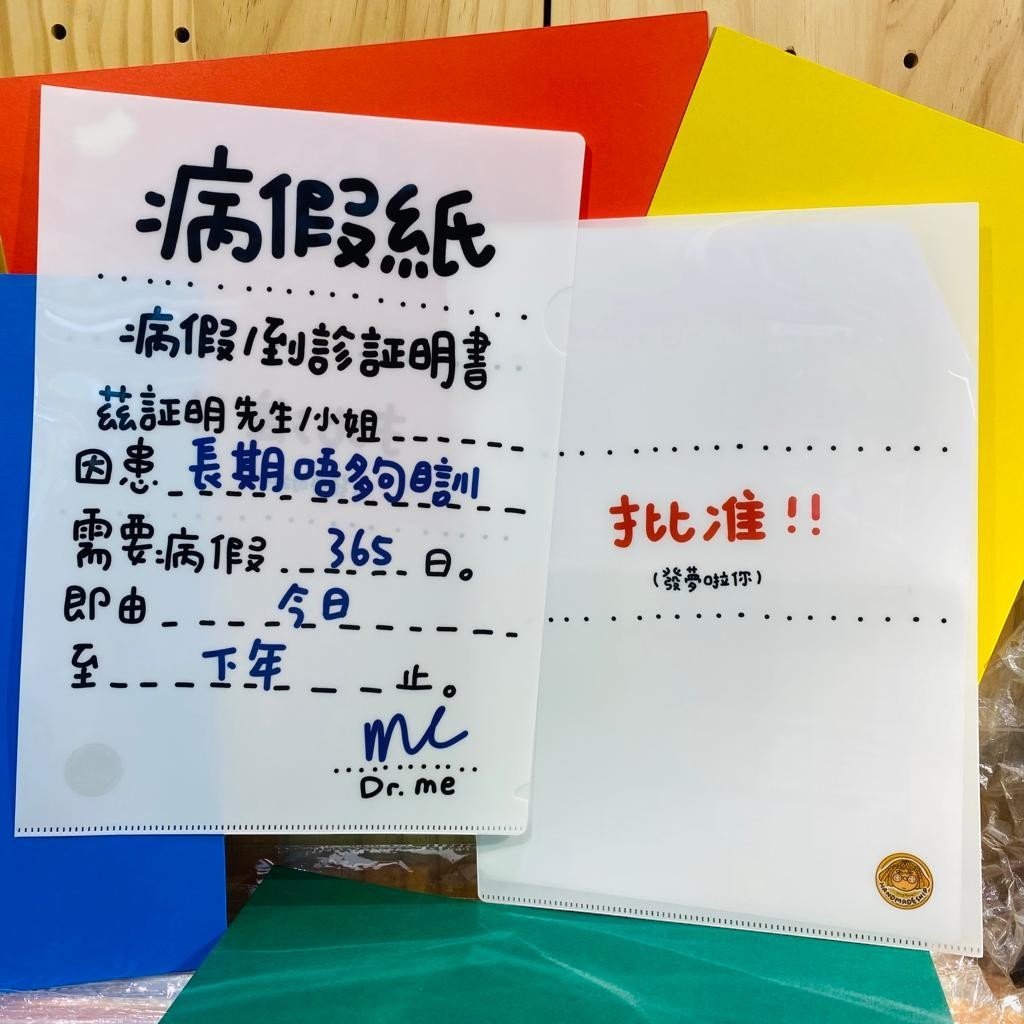 病假紙
病假/到診証明書
茲証明先生/小姐
因患 長期唔夠瞓
需要病假 365 日。
即由 今日
至 下年 止。
mc
Dr. me
批准!!
(發夢啦你)
HANDMADESHIP